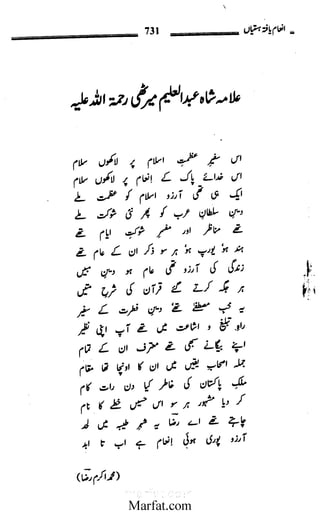 انعام یافتہ ہستیاں
731
علامہ شاہ عبدالعلیم میرٹھی رحمۃ اللہ علیہ
اس سفیرِ عظمتِ اسلام پر لاکھوں سلام
اس خدائے پاک کے انعام پر لاکھوں سلام
ایک ہی تھی آرزو اسلام کو عظمت ملے
دینِ سلطانِ عرب کو پھر نئی شوکت ملے
تھے مناظر اور مفسر شوکتِ ایام تھے
ہند ہو یورپ ہو ہر سو ذکر ان کے عام تھے
زندگی کی آرزو تھی عام ہو دینِ مبیں
ہر جگہ کرتے گئے قرآن کی شرحِ متیں
یہ محب مصطفےٰ تھے دینِ فطرت کے سفیر
راہِ تبلیغ و اشاعت میں تھے آپ اپنی نظیر
اپنے بیگانے سبھی تھے معترف ان کے تمام
جملہ اصحابِ یقیں میں ان کا اونچا تھا مقام
ملکِ پاکستان کی خاطر کیا دن رات کام
کر دیا مشہور ہر سو اس حسیں خطے کا نام
چاہتے تھے اے رضا یہ شہرِ طیبہ میں لحد
آرزو پوری ہوئی انعام ہے اب تا ابد
(محمد اکرم رضا)
Marfat.com